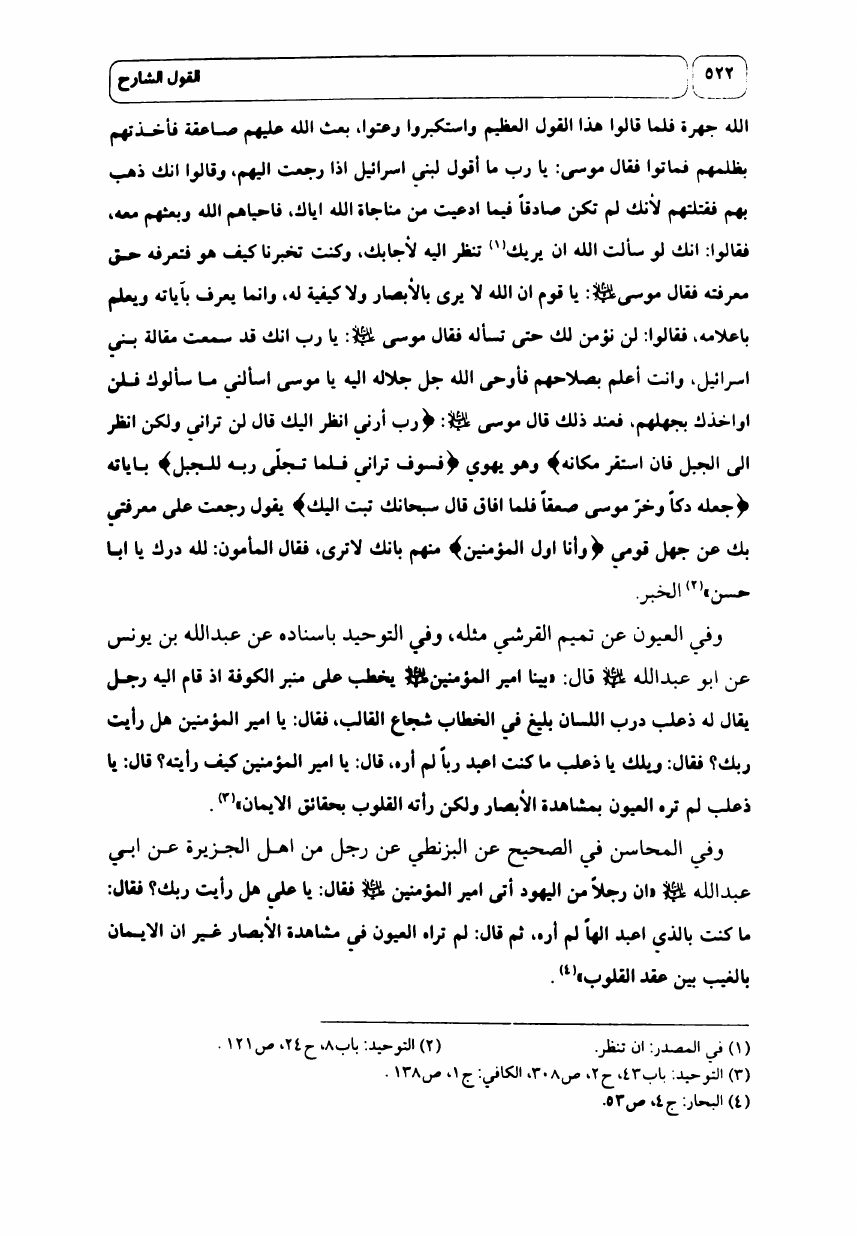 ٥٢٢
القول الشارح
الله جهرة فلما قالوا هذا القول العظيم واستكبروا وعتوا، بعث الله عليهم صاعقة فأخذتهم
بظلمهم فماتوا فقال موسى: يا رب ما أقول لبني اسرائيل اذا رجعت اليهم، وقالوا انك ذهب
بهم فقتلتهم لأنك لم تكن صادقاً فيما ادعيت من مناجاة الله اياك، فاحياهم الله وبعثهم معه،
فقالوا: انك لو سألت الله ان يريك(١) تنظر اليه لأجابك، وكنت تخبرنا كيف هو فتعرفه حق
معرفته فقال موسى عليه السلام: يا قوم ان الله لا يرى بالأبصار ولا كيفية له، وانما يعرف بآياته ويعلم
باعلامه، فقالوا: لن نؤمن لك حتى تسأله فقال موسى عليه السلام: يا رب انك قد سمعت مقالة بني
اسرائيل، وانت أعلم بصلاحهم فأوحى الله جل جلاله اليه يا موسى اسألني ما سألوك فلن
اواخذك بجهلهم، فعند ذلك قال موسى عليه السلام: ﴿رب أرني انظر اليك قال لن تراني ولكن انظر
الى الجبل فان استقر مكانه﴾ وهو يهوي ﴿فسوف تراني فلما تجلّى ربه للجبل﴾ باياته
﴿جعله دكاً وخرّ موسى صعقاً فلما افاق قال سبحانك تبت اليك﴾ يقول رجعت على معرفتي
بك عن جهل قومي ﴿وأنا اول المؤمنين﴾ منهم بانك لاترى، فقال المأمون: لله درك يا ابا
حسن»(٢) الخبر.
وفي العيون عن تميم القرشي مثله، وفي التوحيد باسناده عن عبدالله بن يونس
عن ابو عبدالله عليه السلام قال: «بينا امير المؤمنين عليه السلام يخطب على منبر الكوفة اذ قام اليه رجل
يقال له ذعلب درب اللسان بليغ في الخطاب شجاع القالب، فقال: يا امير المؤمنين هل رأيت
ربك؟ فقال: ويلك يا ذعلب ما كنت اعبد رباً لم أره، قال: يا امير المؤمنين كيف رأيته؟ قال: يا
ذعلب لم تره العيون بمشاهدة الأبصار ولكن رأته القلوب بحقائق الايمان»(٣).
وفي المحاسن في الصحيح عن البزنطي عن رجل من اهل الجزيرة عن ابي
عبدالله عليه السلام «ان رجلاً من اليهود أتى امير المؤمنين عليه السلام فقال: يا علي هل رأيت ربك؟ فقال:
ما كنت بالذي اعبد الهاً لم أره، ثم قال: لم تراه العيون في مشاهدة الأبصار غير ان الايمان
بالغيب بين عقد القلوب»(٤).
(١) في المصدر: ان تنظر. (٢) التوحيد: باب٨، ح٢٤، ص١٢١.
(٣) التوحيد: باب٤٣، ح٢، ص٣٠٨، الكافي: ج١، ص١٣٨.
(٤) البحار: ج٤، ص٥٣.